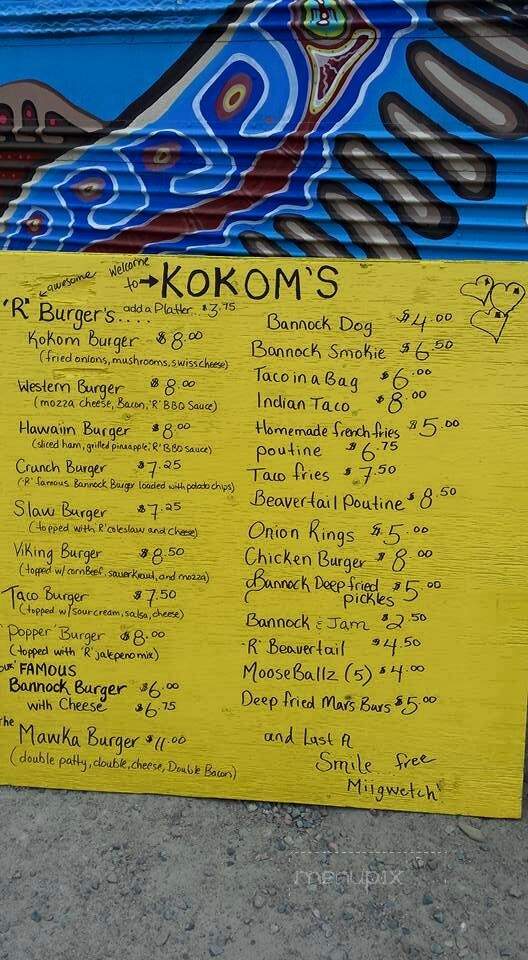 awesome
Welcome
to → KOKOM'S
'R' Burger's.... add a Platter.. $3.75
Kokom Burger $8.00
(fried onions, mushrooms, swiss cheese)
Western Burger $8.00
(mozza cheese, Bacon, 'R' BBQ Sauce)
Hawaiin Burger $8.00
(sliced ham, grilled pineapple, 'R' BBQ sauce)
Crunch Burger $7.25
('R' famous Bannock Burger loaded with potato chips)
Slaw Burger $7.25
(topped with R'coleslaw and cheese)
Viking Burger $8.50
(topped w/cornBeef, sauerkraut, and mozza)
Taco Burger $7.50
(topped w/sour cream, salsa, cheese)
'Popper' Burger $8.00
(topped with 'R' jalepeno mix)
'FAMOUS
Bannock Burger $6.00
with Cheese $6.75
The
Mawka Burger $11.00
(double patty, double, cheese, Double Bacon)
Bannock Dog $4.00
Bannock Smokie $6.50
Taco in a Bag $6.00
Indian Taco $8.00
Homemade french fries $5.00
poutine $6.75
Taco fries $7.50
Beavertail Poutine $8.50
Onion Rings $5.00
Chicken Burger $8.00
Bannock Deep fried $5.00
pickles
Bannock & Jam $2.50
'R' Beavertail $4.50
MooseBallz (5) $4.00
Deep fried Mars Bars $5.00
and Last A
Smile... free
Miigwetch'
menupix